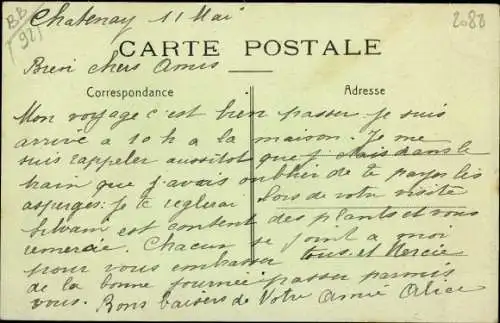 BB
921
Chatenay 11 Mai
2088
CARTE POSTALE
Bien chers Amis
Correspondance
Adresse
Mon voyage c'est bien passer je suis
arrivé a 10 h a la maison. Je me
suis rappeler aussitot que j'étais dans le
train que j'avais oublier de te payer les
asperges: je te reglerai lors de votre visite
Silvain est content des plants et vous
remercie. Chacun se joint a moi
pour vous embrasser tous, et Mercie
de la bonne journée passer parmis
vous. Bons baisers de Votre Amie Alice